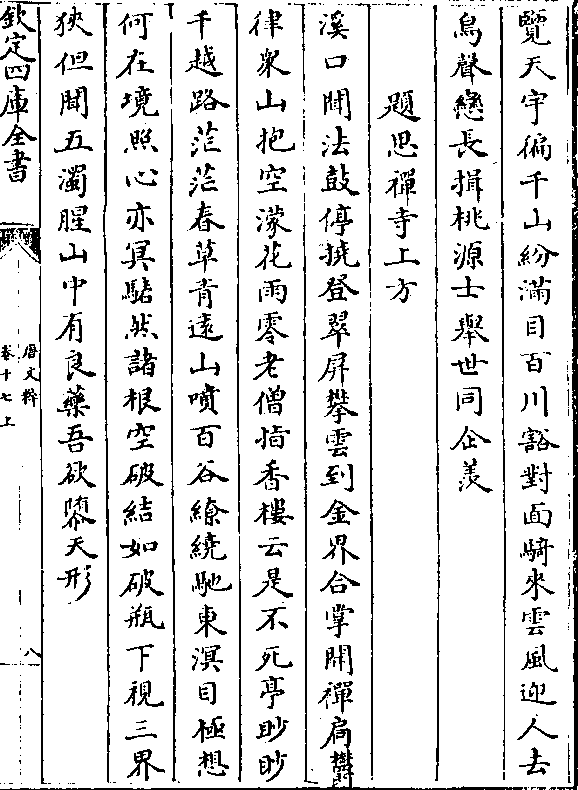 覽天宇徧千山紛滿目百川豁對面騎來雲風迎人去
鳥聲戀長揖桃源士舉世同企羡
題思禪寺上方
溪口聞法鼓停撓登翠屏攀雲到金界合掌開禪扃鬱
律衆山抱空濛花雨零老僧指香樓云是不死亭眇眇
千越路茫茫春草青遠山噴百谷繚繞馳東溟目極想
何在境照心亦冥騞然諸根空破結如破瓶下視三界
狹但聞五濁腥山中有良藥吾欲隳天形
欽定四庫全書
唐文粹
卷十七上
八